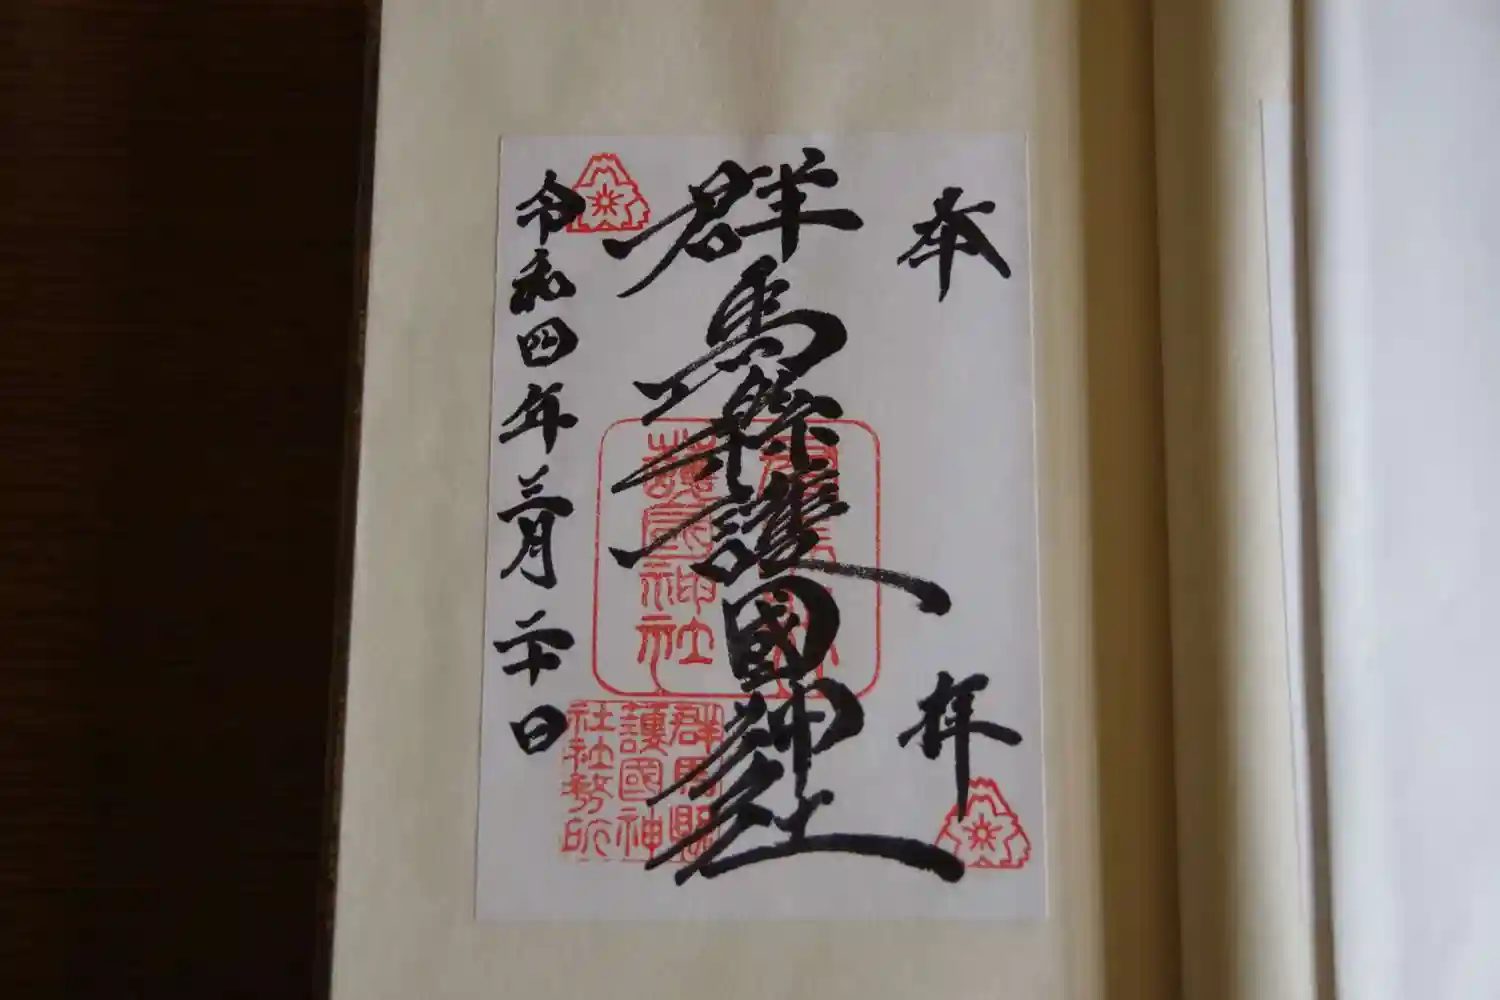 奉拝
群馬縣護國神社
令和四年三月二十日
群馬縣
護國神社
群馬縣
護國神
社社務所